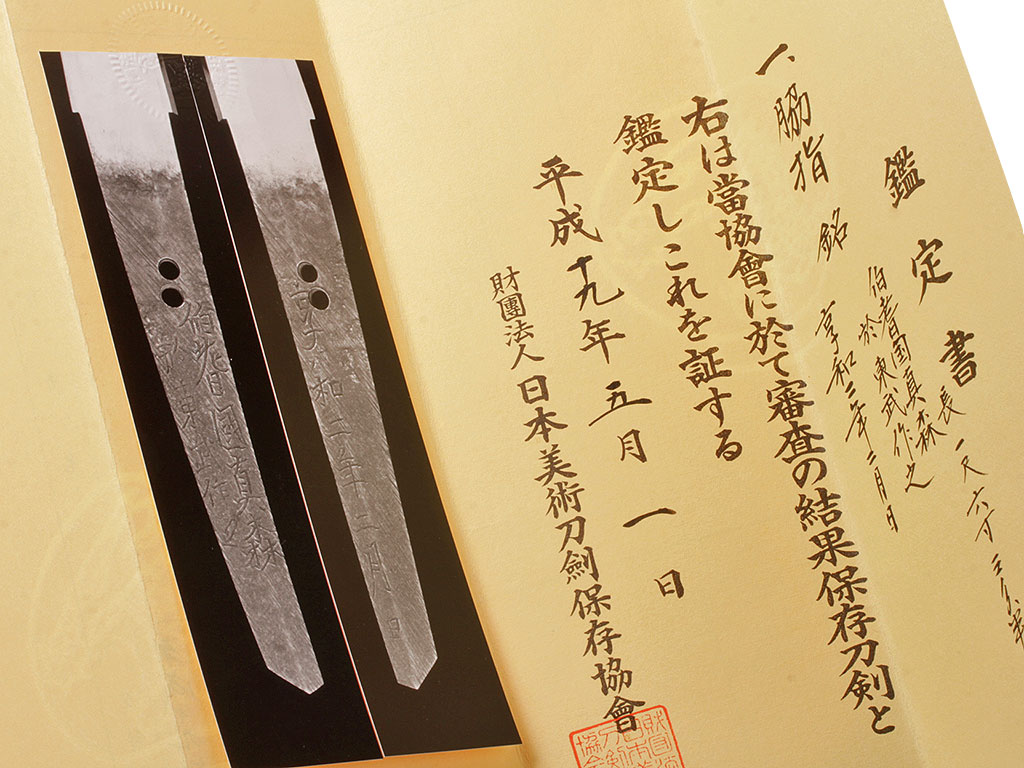 鑑定書
一、脇指 銘
伯耆国真森
於東武作之
享和三年二月日
長一尺六寸三分半
右は當協會に於て審査の結果保存刀剣と
鑑定しこれを証する
平成十九年五月一日
財團法人日本美術刀劍保存協會
享和三年二月日
伯耆国真森
於東武作之